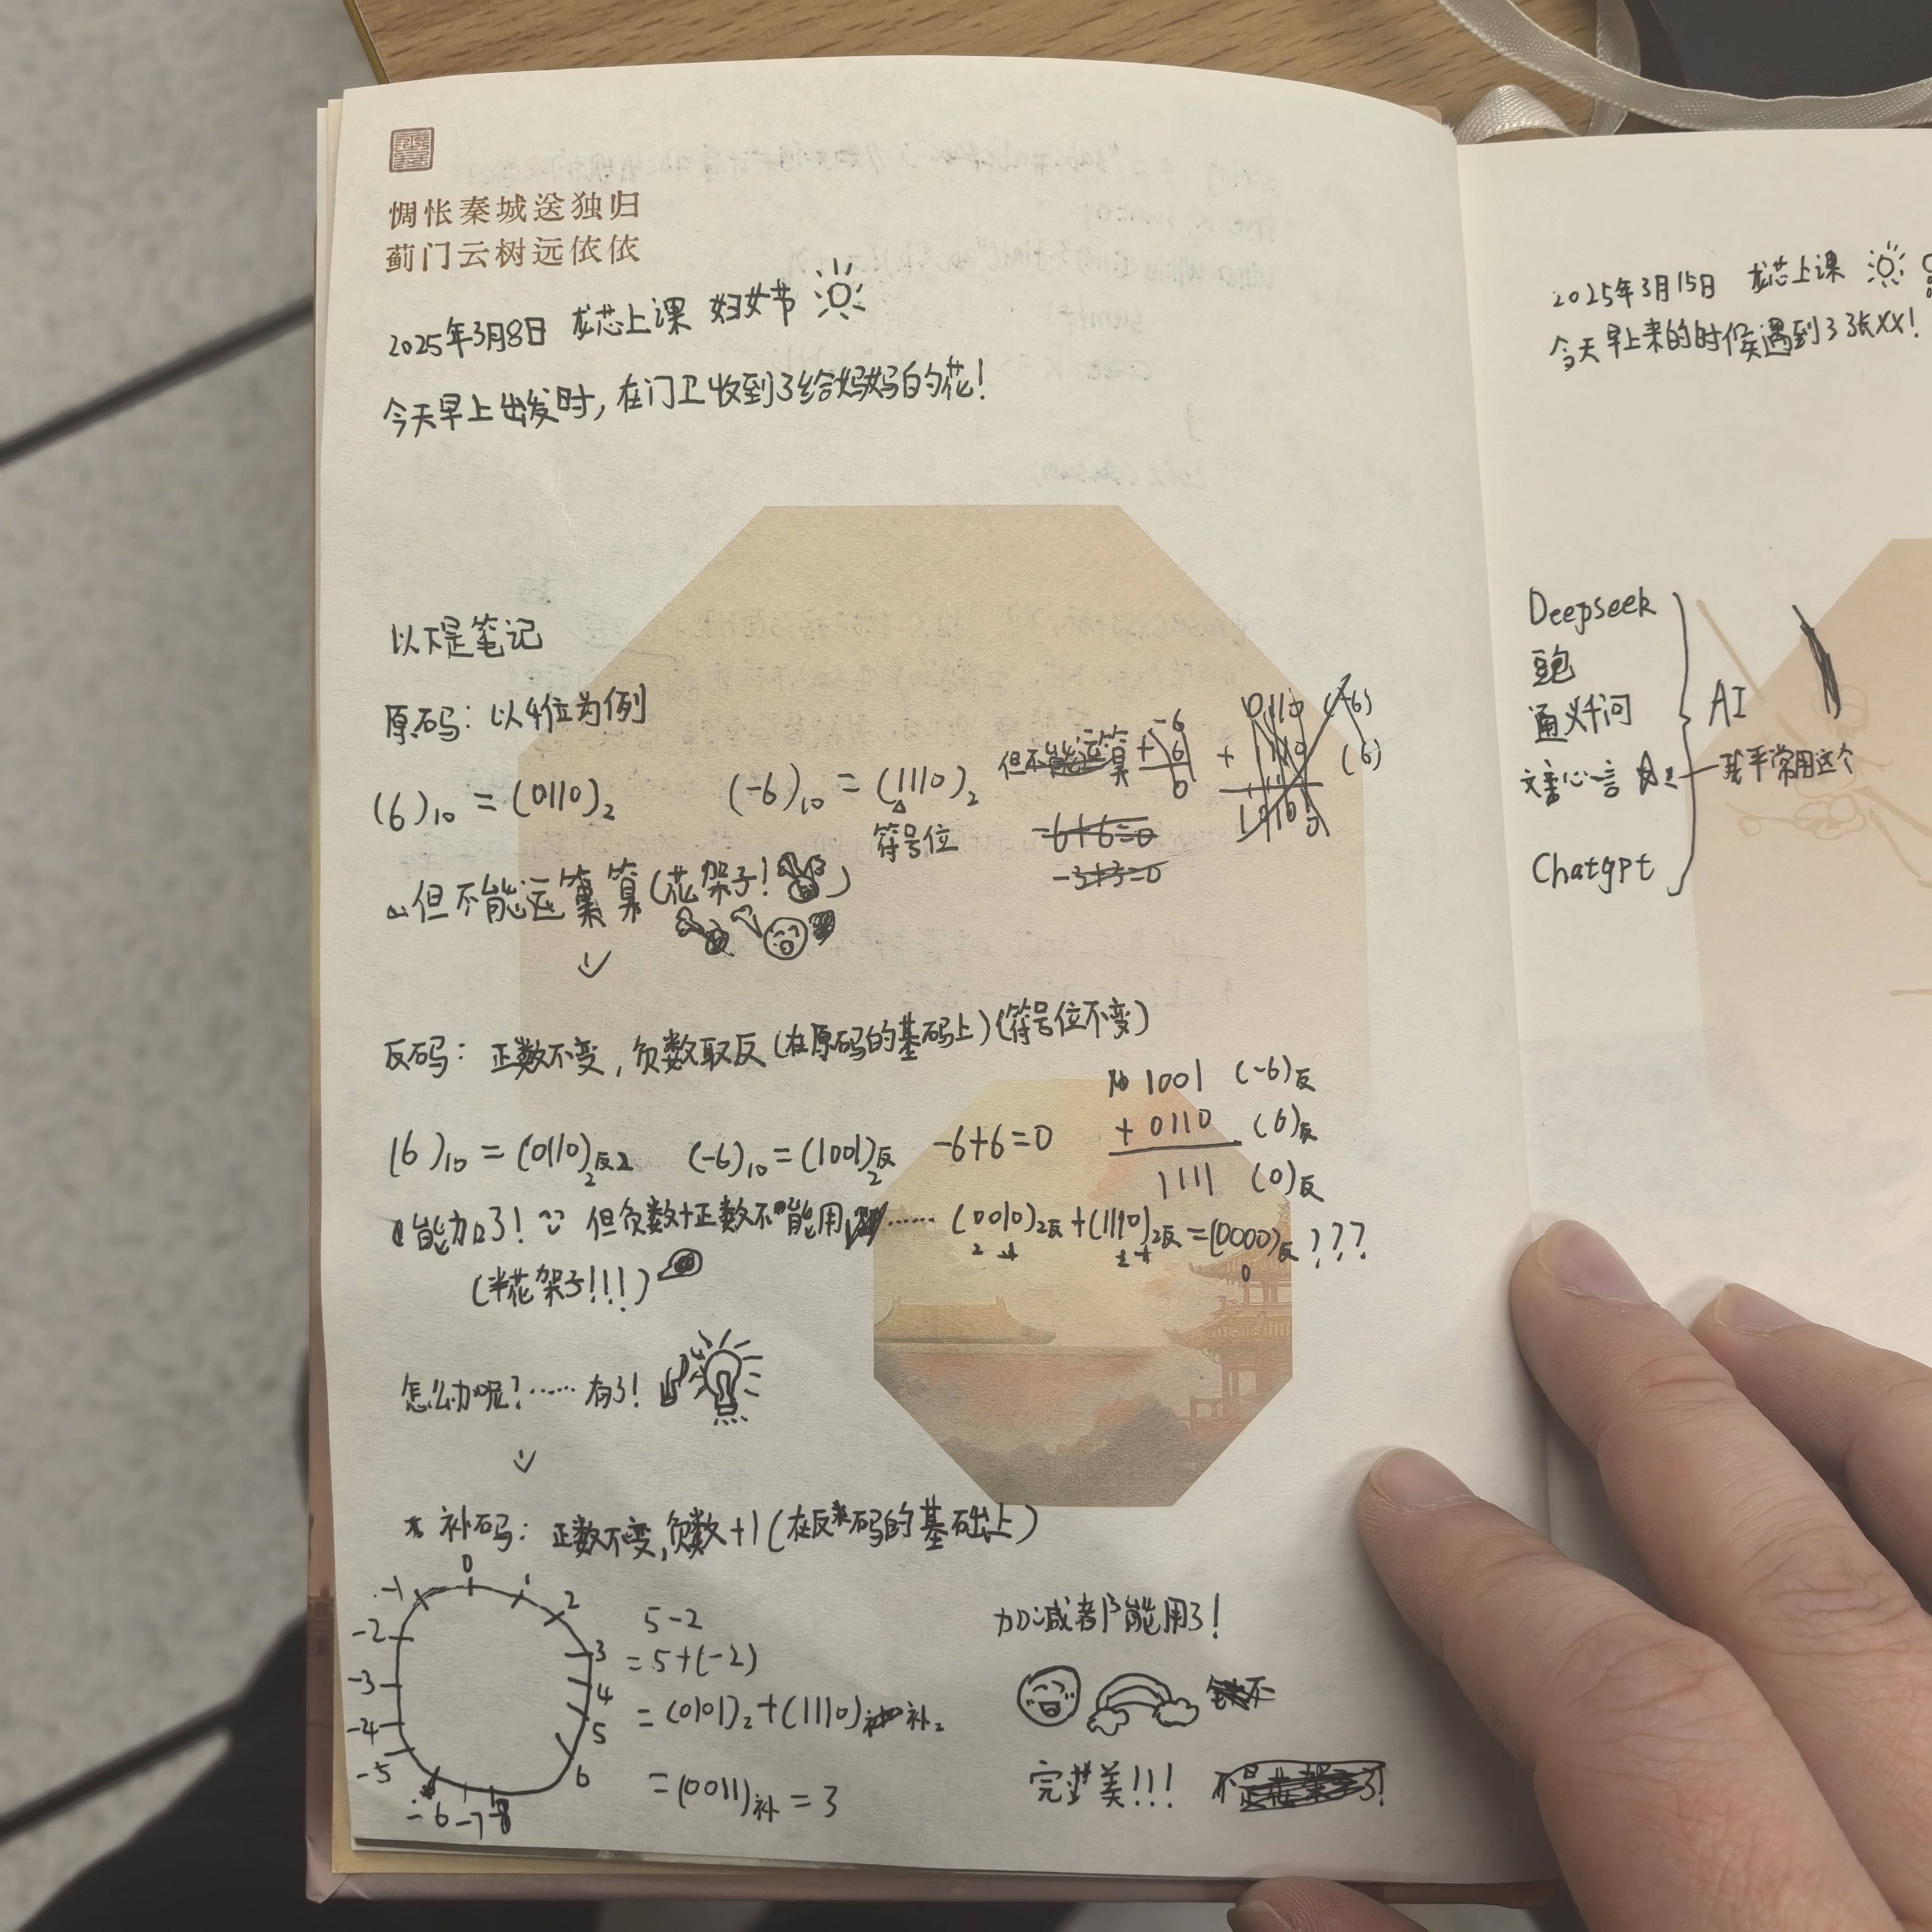 惆怅秦城送独归
蓟门云树远依依
2025年3月8日 龙芯上课 妇女节
今天早上出发时,在门卫收到了给妈妈的花!
以下是笔记
原码:以4位为例
(6)10 = (0110)2 (-6)10 = (1110)2
符号位
但不能运算
-6
+ 6
0
0110 (-6)
+ 1110 (6)
-6+6=0
-3+3=0
但不能运算(花架子!)
反码:正数不变,负数取反(在原码的基码上)(符号位不变)
(6)10 = (0110)反2 (-6)10 = (1001)反2 -6+6=0
1001 (-6)反
+ 0110 (6)反
1111 (0)反
能加了! 但负数+正数不能用…… (0010)2反+(1110)2反=(0000)反???
2 -1 0
(半花架子!!!)
怎么办呢?…… 有了!
补码:正数不变,负数+1(在反码的基础上)
0 1 2 3 4 5 6
-1 -2 -3 -4 -5 -6 -7 -8
5-2
=5+(-2)
=(0101)2+(1110)补2
=(0011)补=3
加减都能用了!
完美!!!
2025年3月15日 龙芯上课
今天早上来的时候遇到了张XX!
Deepseek
豆包
通义千问
文心一言
Chatgpt
AI
我平常用这个